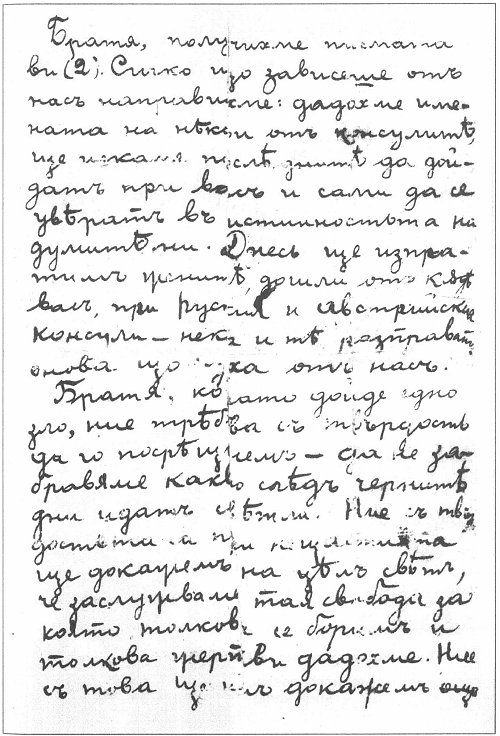 Братя, получихме писмата
ви (2). Сичко що зависеше отъ
насъ направихме: дадохме име-
ната на нѣкои отъ консулитѣ,
ще искаме послѣднитѣ да дой-
датъ при васъ и сами да се
увѣратъ въ истинностьта на
думитѣ ни. Днесь ще изпра-
тимъ женитѣ, дошли отъ къдѣ
васъ, при Руския и Австрийския
консули – нека и тѣ разправятъ
онова що отъ насъ.
Братя, когато дойде едно
зло, ние трѣбва съ твърдость
да го посрѣщнемъ – да не за-
бравяме како слѣдъ чернитѣ
дни идатъ свѣтли. Ние съ твър-
достьта си при нещастията
ще докажемъ на цѣлъ свѣтъ,
че заслужваме тая свобода за
която толкова се боримъ и
толкова жертви дадохме. Ние
съ това ще имъ докажемъ още